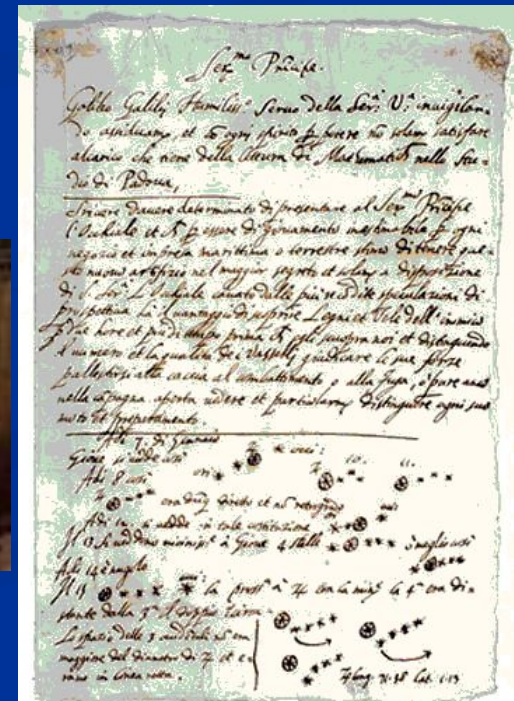 Ser.mo Principe.
Galileo Galilej Humiliss.o Servo della Ser.a V.a invigilan-
do assiduam.e, et cō ogni spirito p potere nō solam satisfare
al carico che tiene della lettura di Mathemat. nello Stu-
dio di Padova,
Scrivere d'avere determinato di presentare al Ser.mo Principe
l'Occhiale et p essere di giovamento inestimabile p ogni
negozio et impresa marittima o terrestre stimo di tenere que-
sto nuovo artifizio nel maggior segreto et solam a disposizione
di S. Ser. L'Occhiale cavato dalle più recondite speculazioni di
prospettiva ha il vantaggio di scoprire Legni et Vele dell'inimico
p due hore et più di tempo prima ch egli scuopra noi et distinguendo
il numero et la qualità de i Vasselli giudicare le sue forze
pallestirsi alla caccia al combattimento o alla fuga, o pure anco
nella capagna aperta vedere et particolarm distinguere ogni suo
moto et preparamento.
Adi 7. di Gennaio
Giove si vedde così
Adi 8 così
era diretto et nō retrogrado
Adi 12. si vedde in tale costituzione
Il 13 si veddono vicinis. à Giove 4 stelle ò meglio così
Adi 14 è nugolo
Il 15 la pross. à ♃ era la min. la 4.a era di-
stante dalla 3.a il doppio
Lo spazio delle 3 occidentali nō era
maggiore del diametro di ♃ et e-
rano in linea retta.
♃ long. 71.38 lat. 1.13